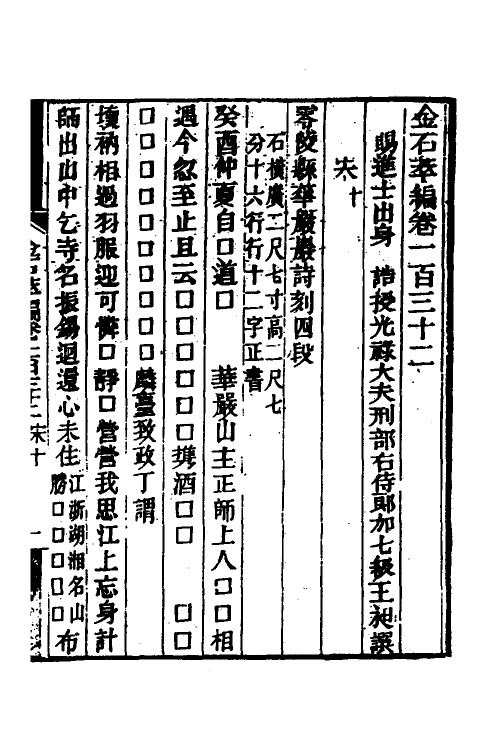 金石萃編卷一百三十二
賜進士出身　誥授光祿大夫刑部右侍郎加七級王昶譔
宋十
零陵縣華嚴巖詩刻四段
石橫廣二尺七寸高二尺七
分十六行行十二字正書
癸酉仲夏自□道□　　華嚴山主正師上人□□相
過今忽至止且云□□□□□□□携酒□□　　□□
□□□□□□□□□　麟臺致政丁謂
壞衲相過羽服迎可憐□靜□營營我思江上忘身計
師出山中乞寺名振錫迴還心未住江浙湖湘名山
勝□□□□□□布
金石萃編卷一百三十二　宋十
一